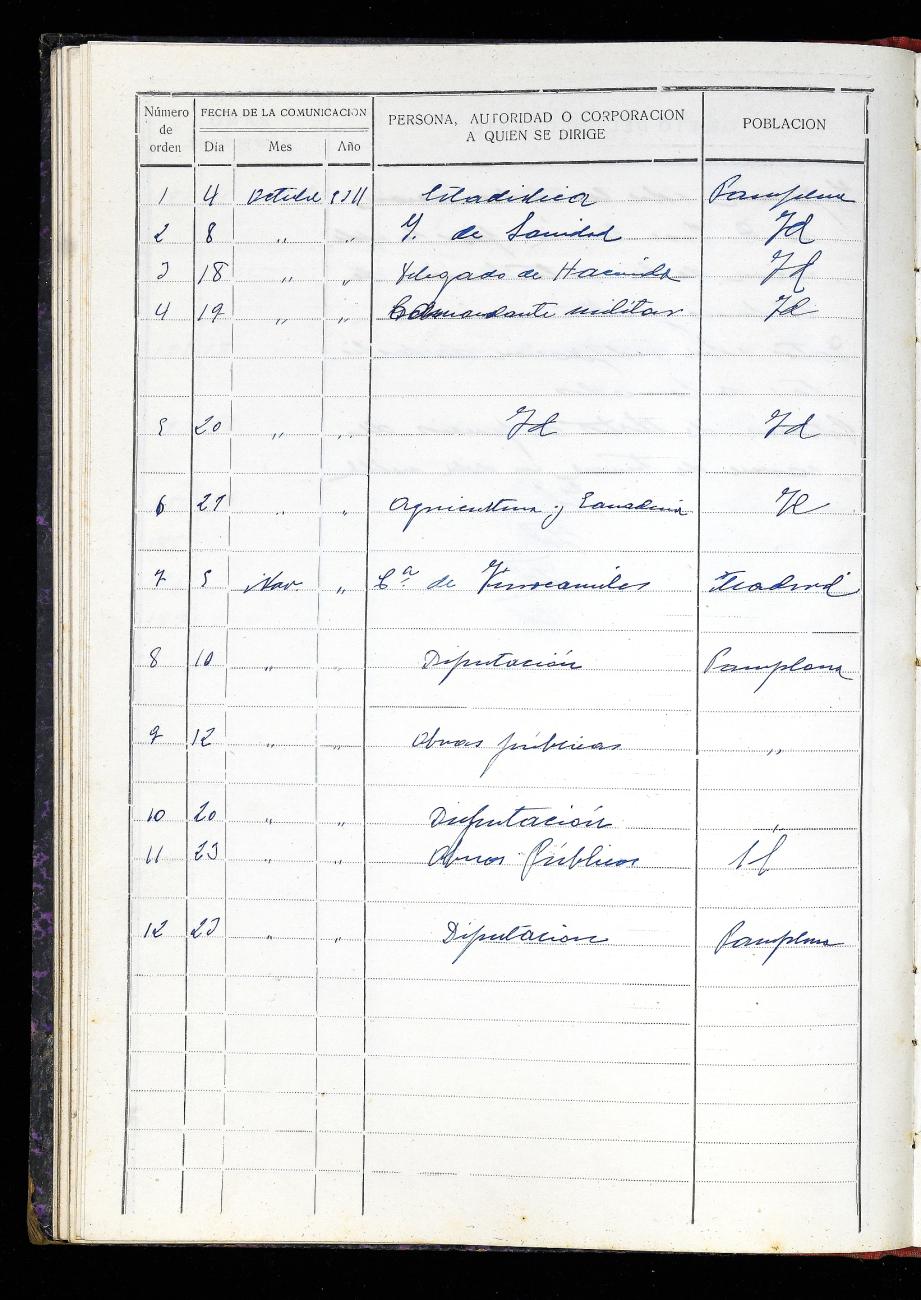 Número de orden
FECHA DE LA COMUNICACION
Día Mes Año
PERSONA, AUTORIDAD O CORPORACION
A QUIEN SE DIRIGE
POBLACION
1 4 Octubre Estadistica Pamplona
2 8 " " Y. de Sanidad Id
3 18 " " Delegado de Hacienda Id
4 19 " " Comandante militar Id
5 20 " " Id Id
6 27 " " Agricultura y Ganaderia Id
7 5 Nov. " Cª de Ferrocarriles Madrid
8 10 " " Diputación Pamplona
9 12 " " Obras públicas "
10 20 " " Diputación "
11 23 " " Obras Públicas Id
12 23 " " Diputacion Pamplona